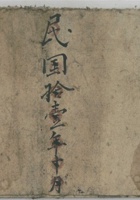 民国拾壹年十月